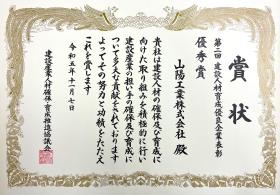 賞状
第二回 建設人材育成優良企業表彰
優秀賞
山陽工業株式会社 殿
貴社は建設人材の確保及び育成に
向けた取り組みを積極的に行い
建設産業の担い手の確保及び育成に
ついて多大な貢献をされております
よってその努力と功績をたたえ
これを賞します
令和五年十一月七日
建設産業人材確保・育成推進協議会